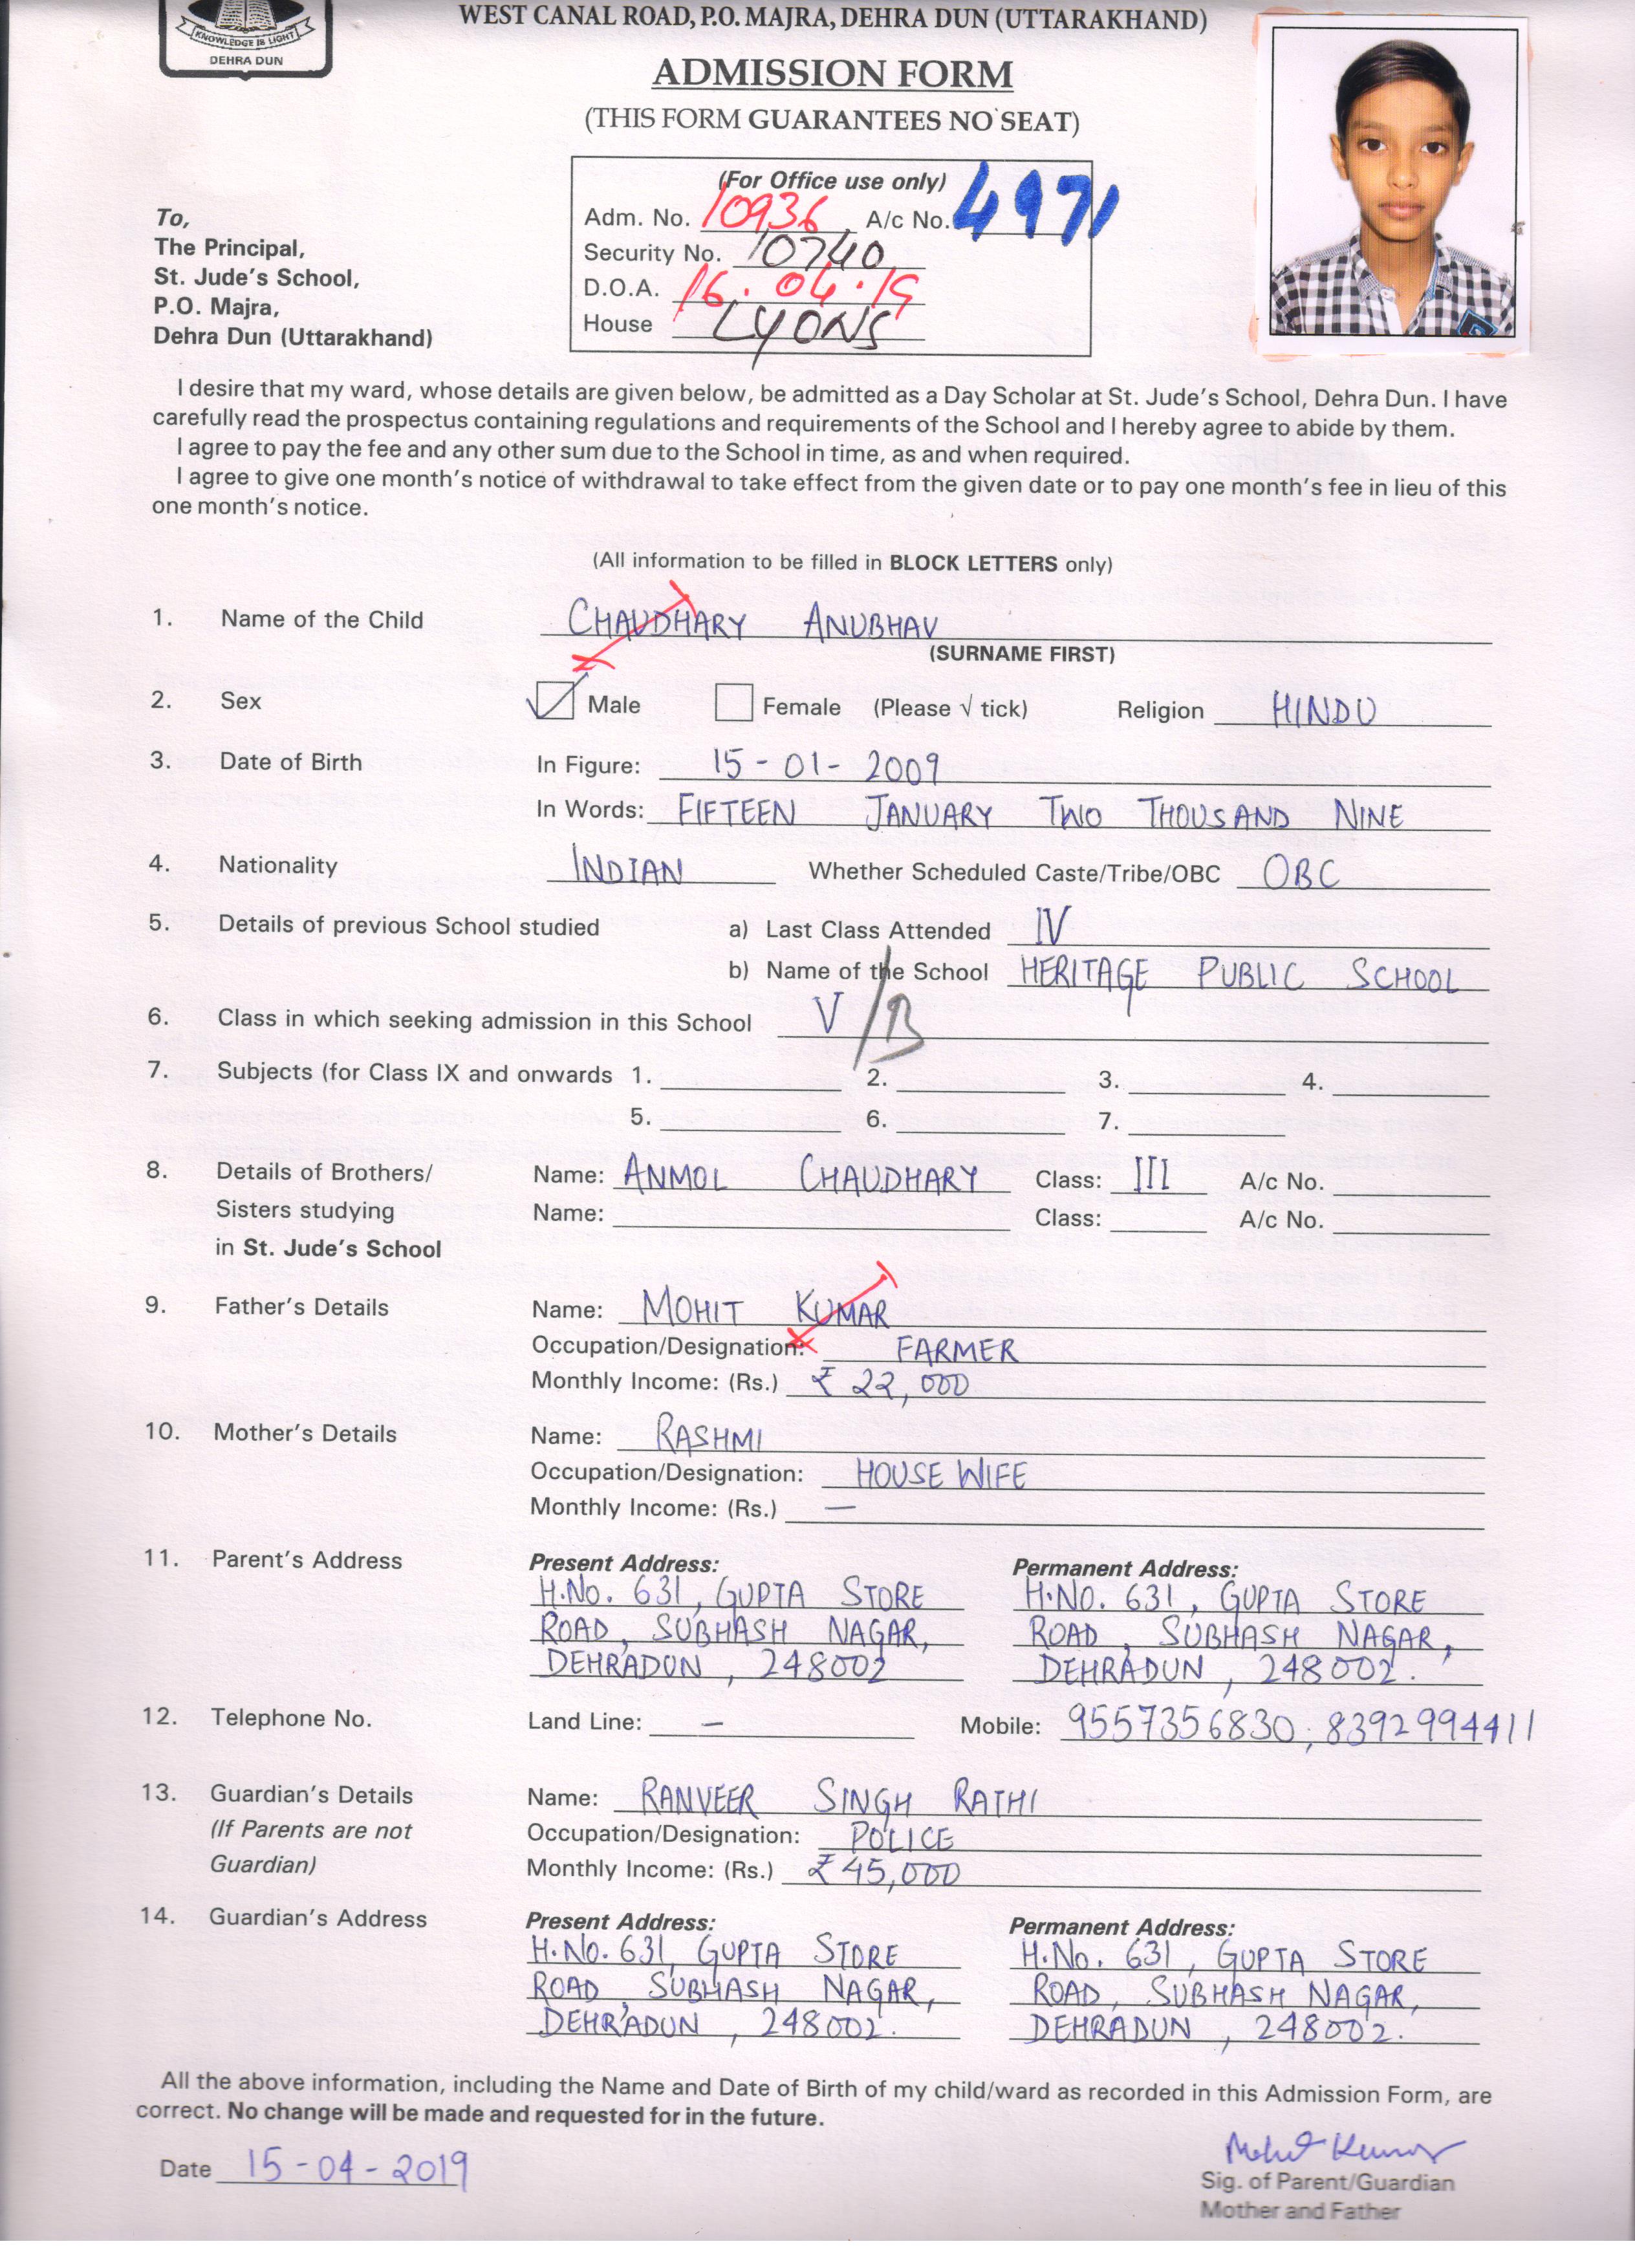 KNOWLEDGE IS LIGHT
DEHRA DUN
WEST CANAL ROAD, P.O. MAJRA, DEHRA DUN (UTTARAKHAND)
ADMISSION FORM
(THIS FORM GUARANTEES NO SEAT)
(For Office use only)
Adm. No. 10936 A/c No. 4971
Security No. 10740
D.O.A. 16.04.19
House LYONS
To,
The Principal,
St. Jude's School,
P.O. Majra,
Dehra Dun (Uttarakhand)
I desire that my ward, whose details are given below, be admitted as a Day Scholar at St. Jude's School, Dehra Dun. I have
carefully read the prospectus containing regulations and requirements of the School and I hereby agree to abide by them.
I agree to pay the fee and any other sum due to the School in time, as and when required.
I agree to give one month's notice of withdrawal to take effect from the given date or to pay one month's fee in lieu of this
one month's notice.
(All information to be filled in BLOCK LETTERS only)
1. Name of the Child CHAUDHARY ANUBHAV
(SURNAME FIRST)
2. Sex Male Female (Please √ tick) Religion HINDU
3. Date of Birth In Figure: 15-01-2009
In Words: FIFTEEN JANUARY TWO THOUSAND NINE
4. Nationality INDIAN Whether Scheduled Caste/Tribe/OBC OBC
5. Details of previous School studied a) Last Class Attended IV
b) Name of the School HERITAGE PUBLIC SCHOOL
6. Class in which seeking admission in this School V/B
7. Subjects (for Class IX and onwards 1. 2. 3. 4.
5. 6. 7.
8. Details of Brothers/ Name: ANMOL CHAUDHARY Class: III A/c No.
Sisters studying Name: Class: A/c No.
in St. Jude's School
9. Father's Details Name: MOHIT KUMAR
Occupation/Designation: FARMER
Monthly Income: (Rs.) ₹ 22,000
10. Mother's Details Name: RASHMI
Occupation/Designation: HOUSE WIFE
Monthly Income: (Rs.) —
11. Parent's Address Present Address: Permanent Address:
H.No. 631, GUPTA STORE H.NO. 631, GUPTA STORE
ROAD, SUBHASH NAGAR, ROAD, SUBHASH NAGAR,
DEHRADUN, 248002 DEHRADUN, 248002.
12. Telephone No. Land Line: — Mobile: 9557356830, 8392994411
13. Guardian's Details Name: RANVEER SINGH RATHI
(If Parents are not Occupation/Designation: POLICE
Guardian) Monthly Income: (Rs.) ₹ 45,000
14. Guardian's Address Present Address: Permanent Address:
H.No. 631, GUPTA STORE H.No. 631, GUPTA STORE
ROAD, SUBHASH NAGAR, ROAD, SUBHASH NAGAR,
DEHRADUN, 248002. DEHRADUN, 248002.
All the above information, including the Name and Date of Birth of my child/ward as recorded in this Admission Form, are
correct. No change will be made and requested for in the future.
Date 15-04-2019 Mohit Kumar
Sig. of Parent/Guardian
Mother and Father